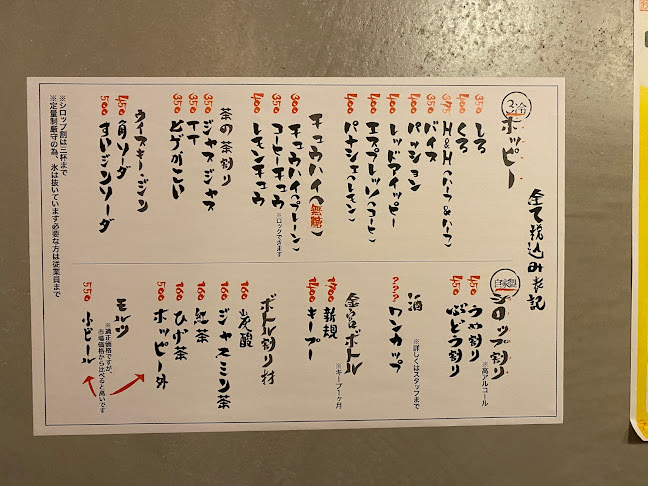 全て税込み表記
3冷 ホッピー
350 しろ
400 くろ
375 H&H(ハーフ&ハーフ)
350 バイス
400 パッション
400 レッドアイッピー
400 エスプレッソ(コーヒー)
400 パナシェ(レモン)
チュウハイ(無糖)
300 チュウハイ(プレーン)
350 コーヒーチュウ
※ロックできます
400 レモンチュウ
茶の茶割り
350 ジャスジャス
350 TT
350 ヒゲがこい
ウイスキー・ジン
450 角ソーダ
500 すいジンソーダ
※シロップ割は三杯まで
※定量制厳守の為、氷は抜いています必要な方は従業員まで
自家製 シロップ割り
※高アルコール
450 うめ割り
450 ぶどう割り
酒
※詳しくはスタッフまで
??? ワンカップ
金宮ボトル
※キープ1ヶ月
1700 新規
1400 キープ
ボトル割り材
160 炭酸
160 ジャスミン茶
160 紅茶
160 ひげ茶
500 ホッピー外
モルツ
※適正価格ですが、
市場価格から比べると高いです
550 小ビール